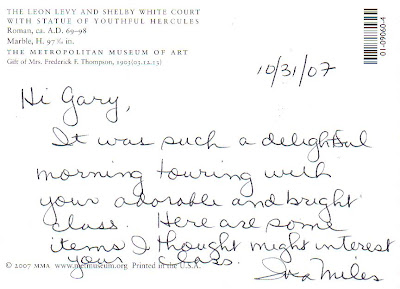 THE LEON LEVY AND SHELBY WHITE COURT
WITH STATUE OF YOUTHFUL HERCULES
Roman, ca. A.D. 69–98
Marble, H. 97 in.
THE METROPOLITAN MUSEUM OF ART
Gift of Mrs. Frederick F. Thompson, 1903 (03.12.13)
01-09060-4
10/31/07
Hi Gary,
It was such a delightful
morning touring with
your adorable and bright
class. Here are some
items I thought might interest
your class.
Miles
© 2007 MMA www.metmuseum.org Printed in the U.S.A.